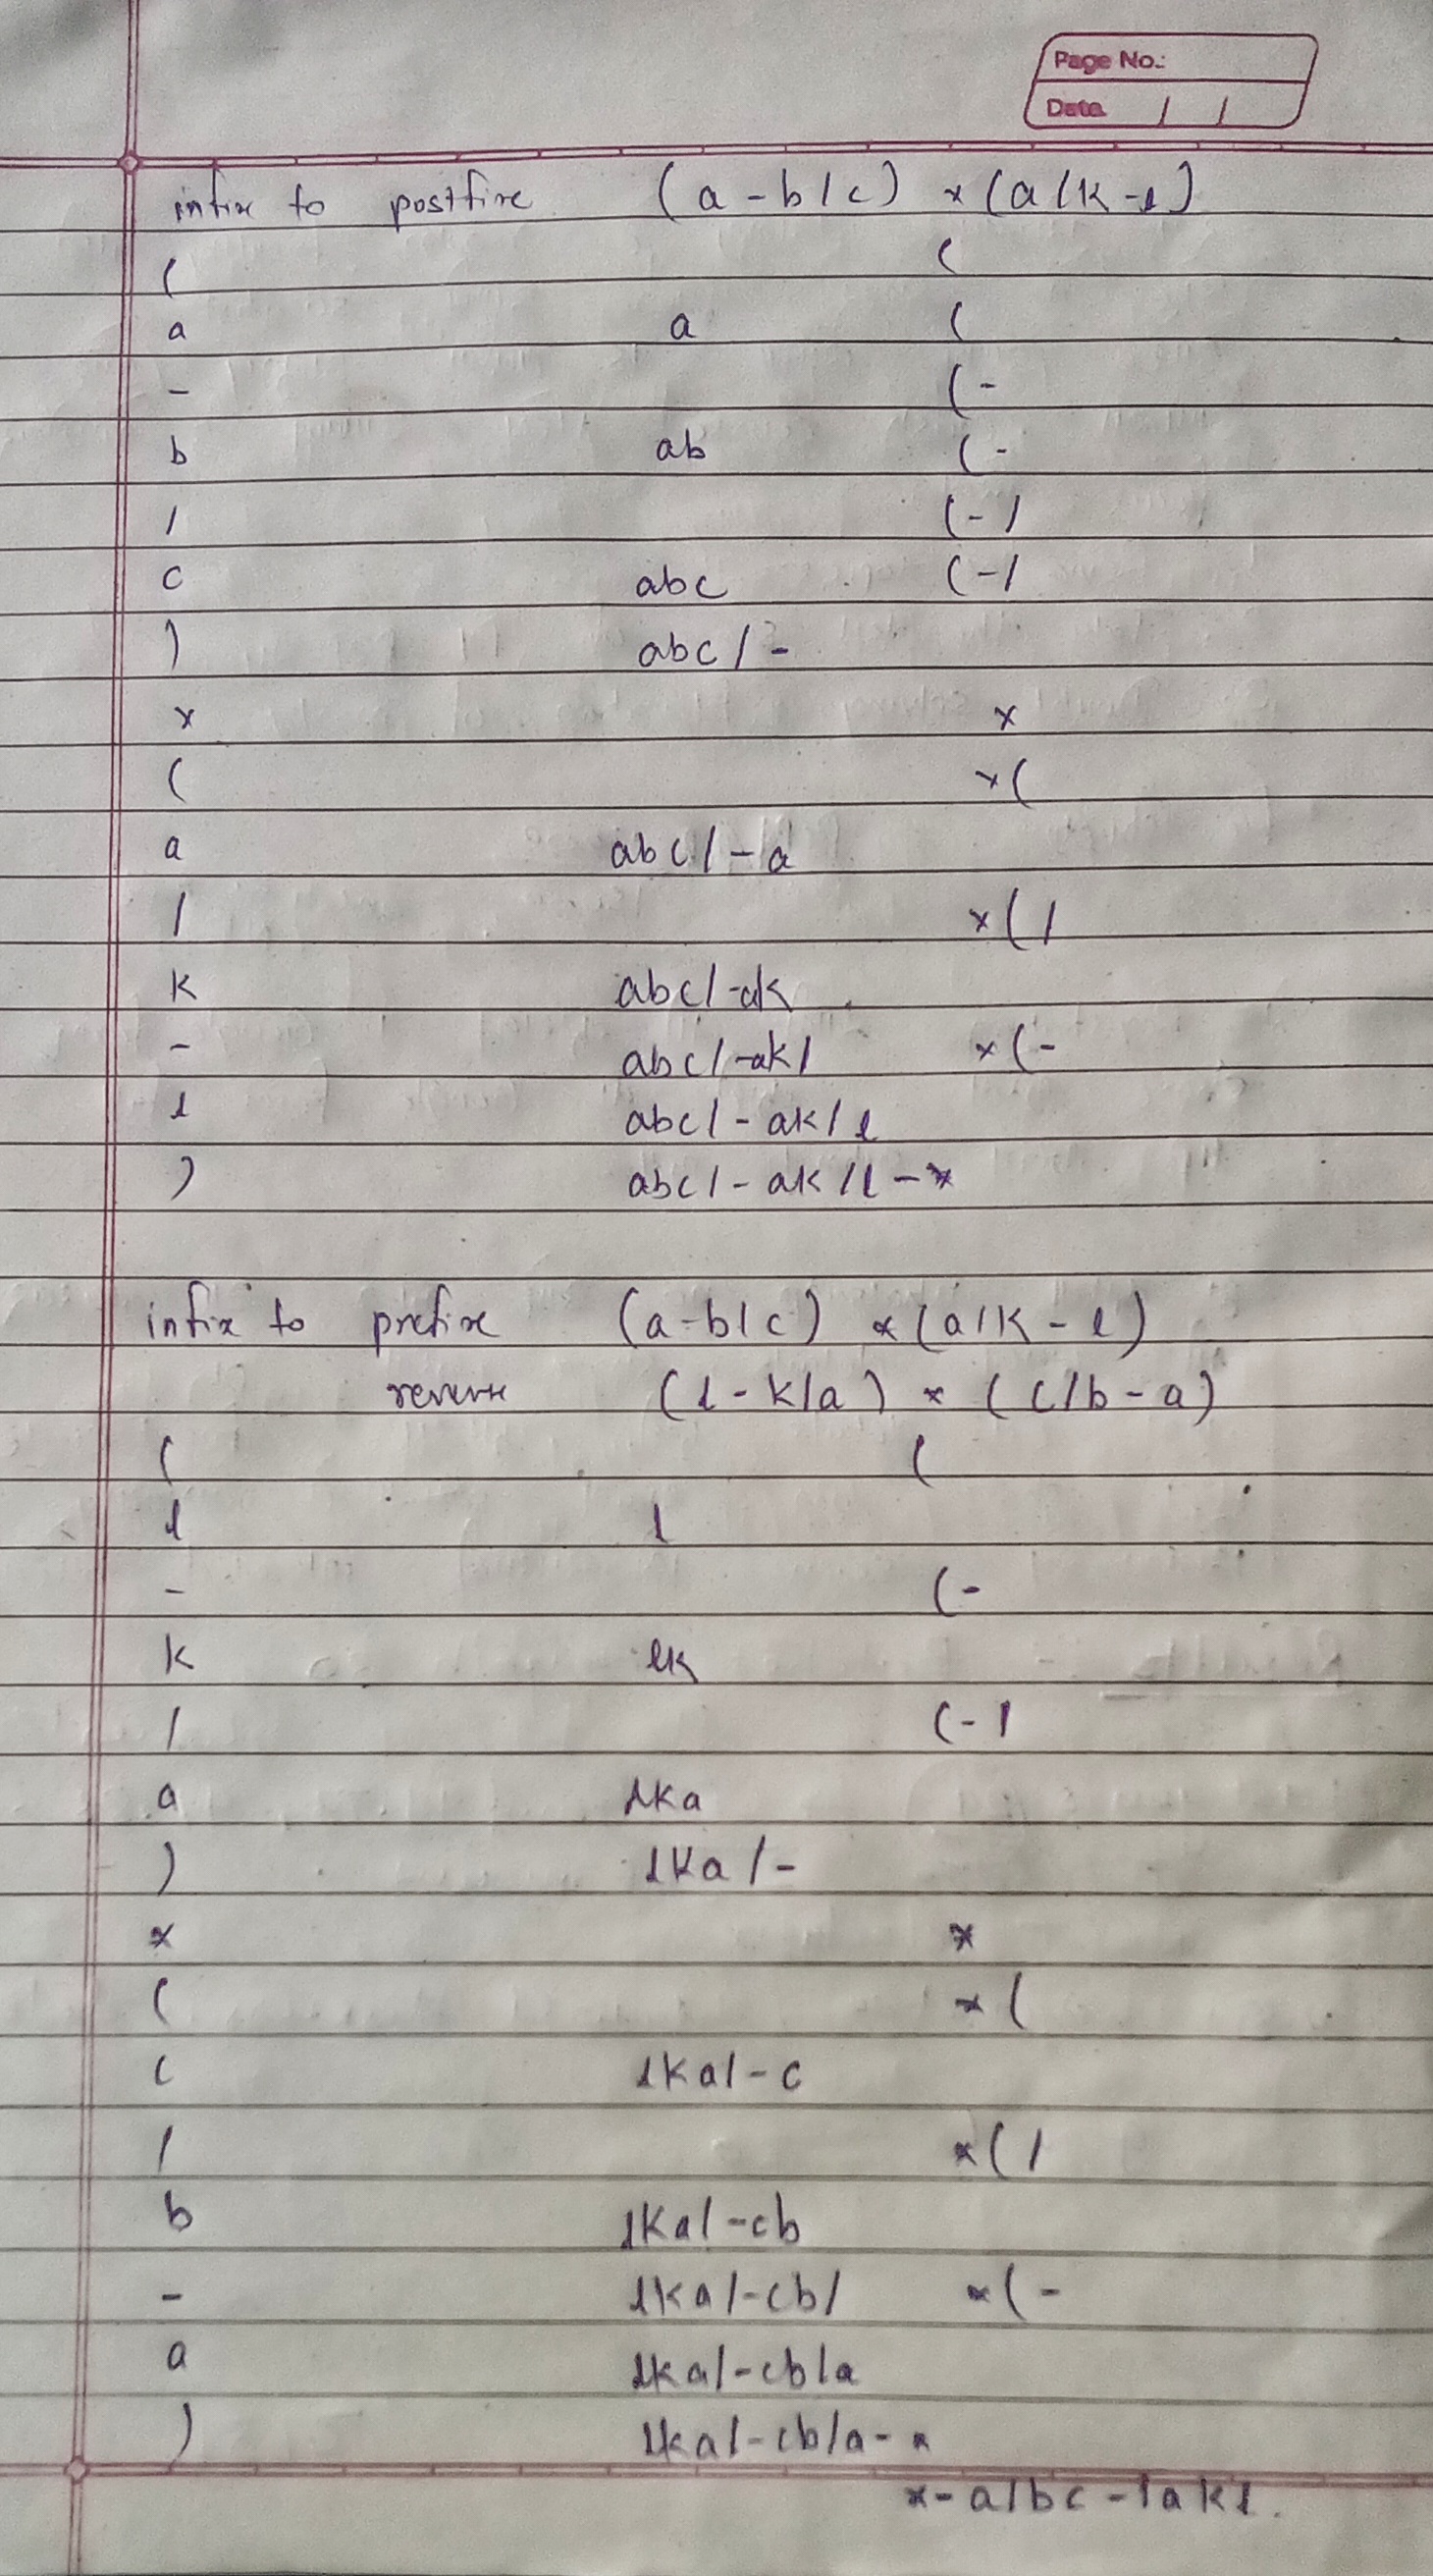 Page No.:
Date / /
infix to postfix (a - b / c) * (a / k - l)
( (
a a (
- ( -
b ab ( -
/ ( - /
c abc ( - /
) abc / -
* *
( * (
a abc / - a
/ * ( /
k abc / - ak
- abc / - ak / * ( -
l abc / - ak / l
) abc / - ak / l - *
infix to prefix (a - b / c) * (a / k - l)
reverse (l - k / a) * (c / b - a)
( (
l l
- ( -
k lk
/ ( - /
a lka
) lka / -
* *
( * (
c lka / - c
/ * ( /
b lka / - cb
- lka / - cb / * ( -
a lka / - cb / a
) lka / - cb / a - *
* - a / bc - / a k l .